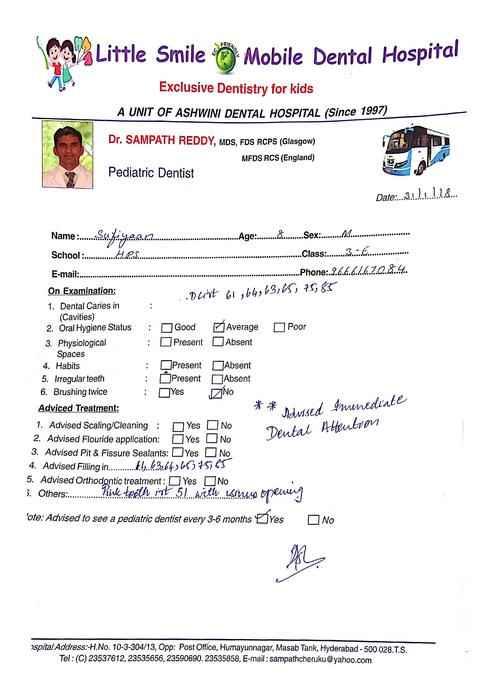 Little Smile ECO FRIENDLY Mobile Dental Hospital
Exclusive Dentistry for kids
A UNIT OF ASHWINI DENTAL HOSPITAL (Since 1997)
Dr. SAMPATH REDDY, MDS, FDS RCPS (Glasgow)
MFDS RCS (England)
Pediatric Dentist
Date: 31/1/18
Name: Sufiyaan Age: 8 Sex: M
School: HPS Class: 3-E
E-mail: Phone: 9666167084
On Examination: 61, 64, 63, 65, 75, 85
1. Dental Caries in :
(Cavities)
2. Oral Hygiene Status : Good Average Poor
3. Physiological : Present Absent
Spaces
4. Habits : Present Absent
5. Irregular teeth : Present Absent
6. Brushing twice : Yes No
** Advised Immediate
Dental Attention
Adviced Treatment:
1. Advised Scaling/Cleaning : Yes No
2. Advised Flouride application: Yes No
3. Advised Pit & Fissure Sealants: Yes No
4. Advised Filling in 63, 64, 65, 75, 85
5. Advised Orthodontic treatment : Yes No
Others: Pink tooth irt 51 with opening
ote: Advised to see a pediatric dentist every 3-6 months Yes No
ospital Address:-H.No. 10-3-304/13, Opp: Post Office, Humayunnagar, Masab Tank, Hyderabad - 500 028.T.S.
Tel : (C) 23537612, 23535656, 23590690. 23535858, E-mail : sampathcheruku@yahoo.com